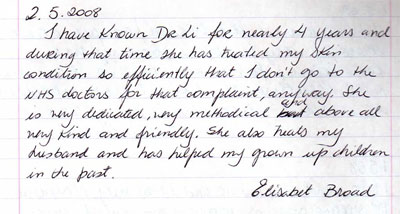 2.5.2008
I have known Dr Li for nearly 4 years and
during that time she has treated my skin
condition so efficiently that I don't go to the
NHS doctors for that complaint, anyway. She
is very dedicated, very methodical and above all
very kind and friendly. She also heals my
husband and has helped my grown up children
in the past.
Elisabet Broad